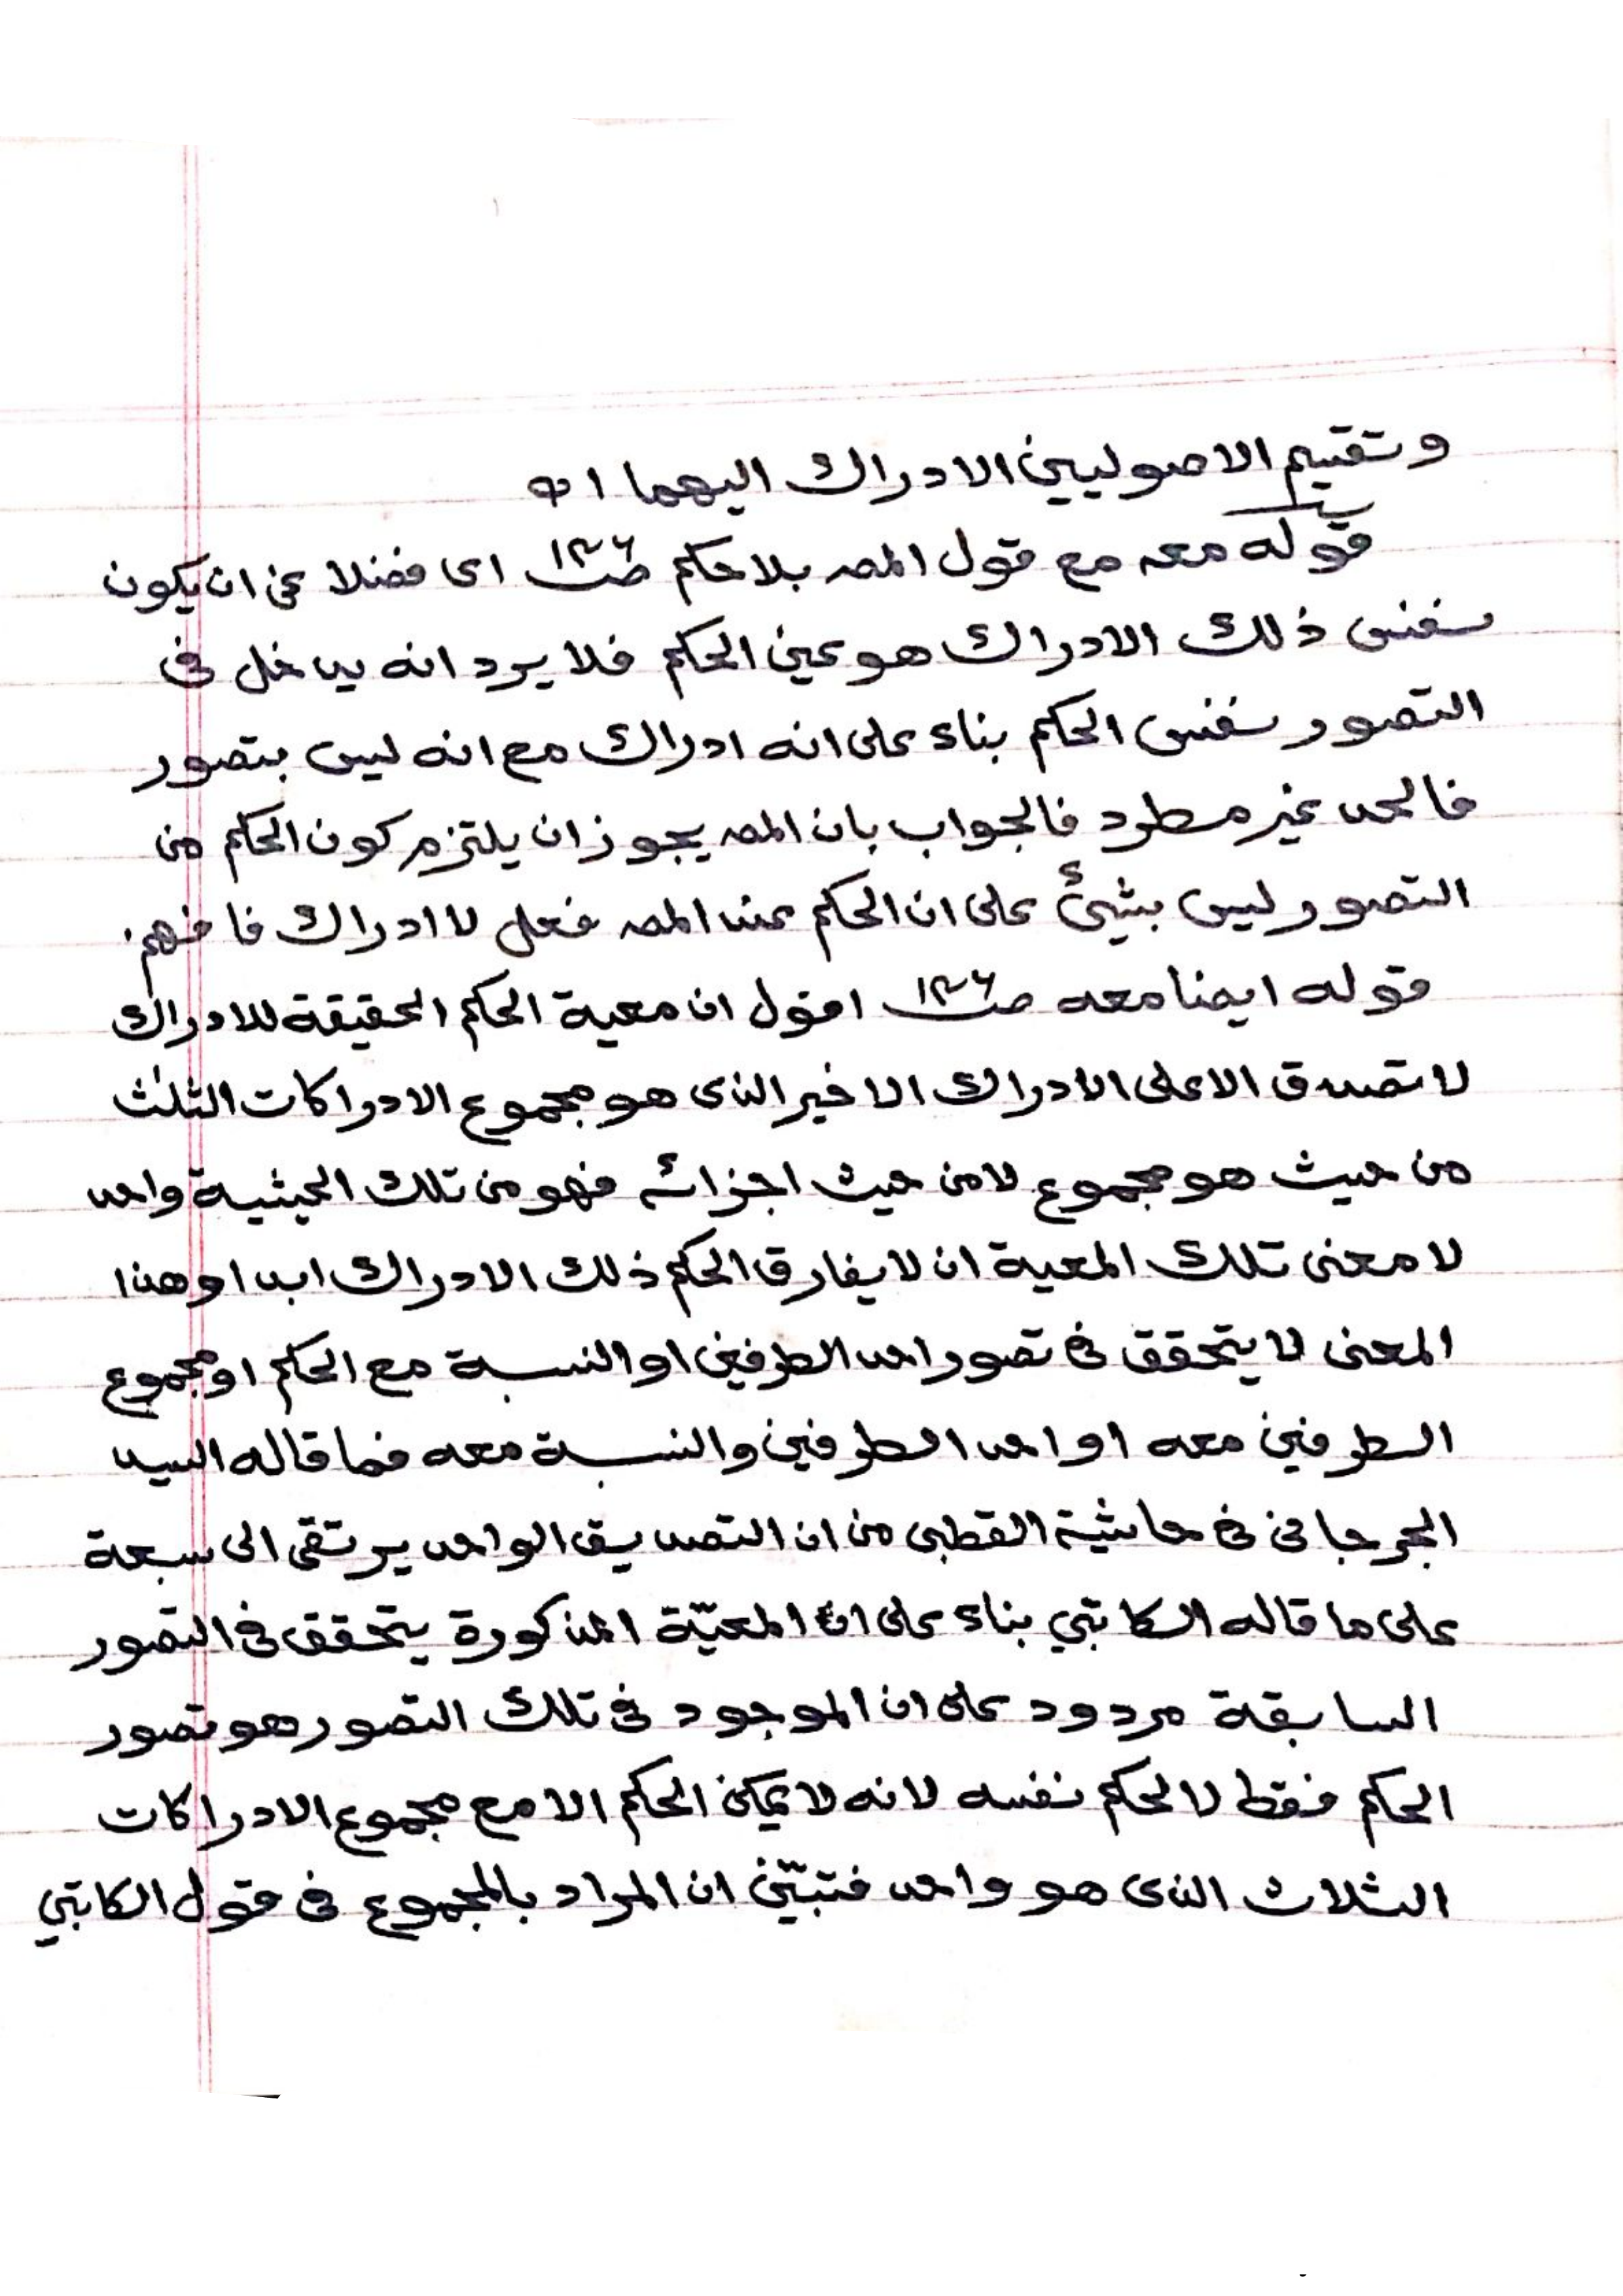 وتقسيم الاصوليين الادراك اليهما ا ه
قوله معه مع قول المصـ بلا حكم صـ١٣٦ اى فضلا عن ان يكون
نفس ذلك الادراك هو عين الحكم فلا يرد انه يدخل فى
التصور نفس الحكم بناء على انه ادراك مع انه ليس بتصور
فالحد غير مطرد فالجواب بان المصـ يجوز ان يلتزم كون الحكم من
التصور ليس بشئ على ان الحكم عند المصـ فعل لا ادراك فافهم.
قوله ايضا معه صـ١٣٦ اقول ان معية الحكم الحقيقة للادراك
لا تصدق الا على الادراك الاخير الذى هو مجموع الادراكات الثلث
من حيث هو مجموع لا من حيث اجزائه فهو من تلك الحيثية واحد
لا معنى تلك المعية ان لا يفارق الحكم ذلك الادراك ابدا وهذا
المعنى لا يتحقق فى تصور احد الطرفين او النسبة مع الحكم او مجموع
الطرفين معه او احد الطرفين والنسبة معه فما قاله السيد
الجرجانى فى حاشية القطبى من ان التصديق الواحد يرتقى الى سبعة
على ما قاله الكاتبي بناء على ان المعيّة المذكورة يتحقق فى التصور
السابقة مردود على ان الموجود فى تلك التصور هو تصور
الحكم فقط لا الحكم نفسه لانه لا يمكن الحكم الا مع مجموع الادراكات
الثلاث الذى هو واحد فتبيّن ان المراد بالمجموع فى قول الكاتبي